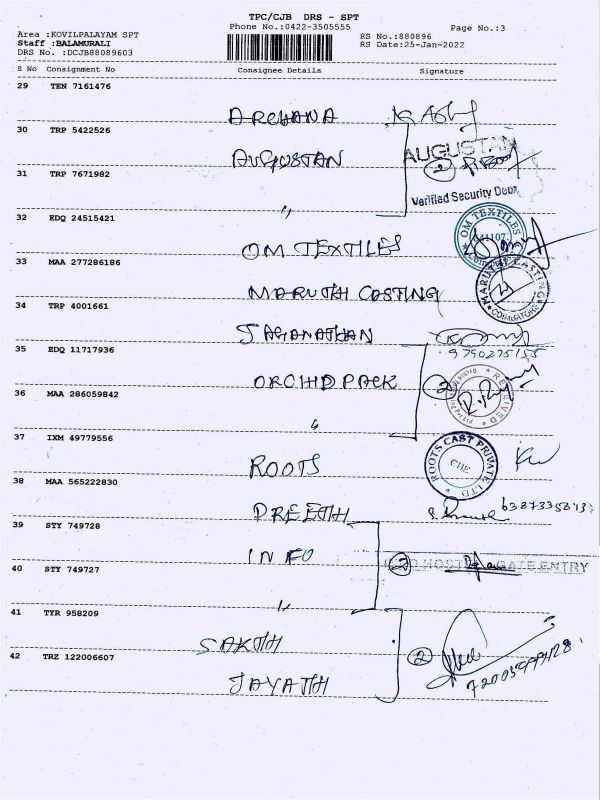 TPC/CJB DRS - SPT
Phone No.:0422-3505555
Page No.:3
Area :KOVILPALAYAM SPT
Staff :BALAMURALI
DRS No. :DCJB88089603
RS No.:880896
RS Date:25-Jan-2022
S No Consignment No Consignee Details Signature
29 TEN 7161476
ARCHANA
30 TRP 5422526
AUGUSTAN AUGUSTAN
2
31 TRP 7671982
〃 Verified Security Dept
32 EDQ 24515421
OM TEXTILES OM TEXTILES
33 MAA 277286186
MARUTHI CASTING MARUTHI CASTING COIMBATORE
34 TRP 4001661
JAGANATHAN
9790275155
35 EDQ 11717936
ORCHID PACK 2 RECEIVED
36 MAA 286059842
〃
37 IXM 49779556
ROOTS ROOTS CAST PRIVATE LTD CBE
38 MAA 565222830
PREETHI
39 STY 749728
INFO 2 GATE ENTRY
40 STY 749727
〃
41 TYR 958209
SAKTHI 2
42 TRZ 122006607
JAYATHI